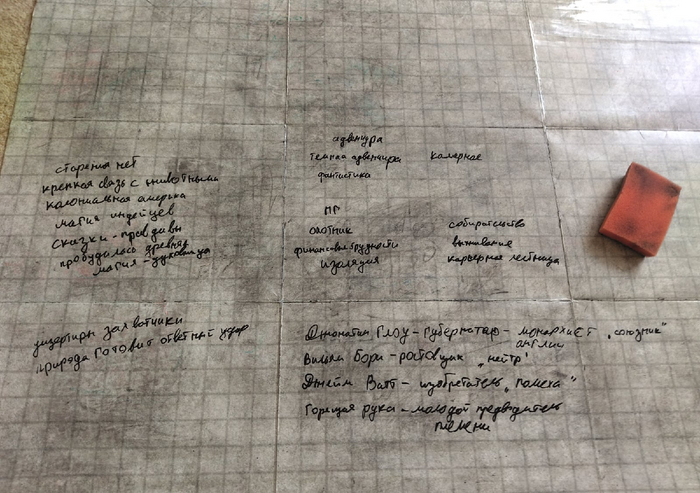 старения нет
крепкая связь с животными
колониальная америка
магия индейцев
сказки - правдивы
пробудилась древняя
магия - духовища
адвенчура
темная адвенчура
камерное
фантастика
ПГ
охотник
собирательство
финансовые трудности
выживание
изоляция
карьерная лестница
захватчики
природа готовит ответный удар
Джонатан Глоу - губернатор - монархист „союзник"
англии
Вильям Борн - ростовщик „нейтр"
Джейм Ватт - изобретатель „помеха"
Горящая рука - молодой предводитель
племени